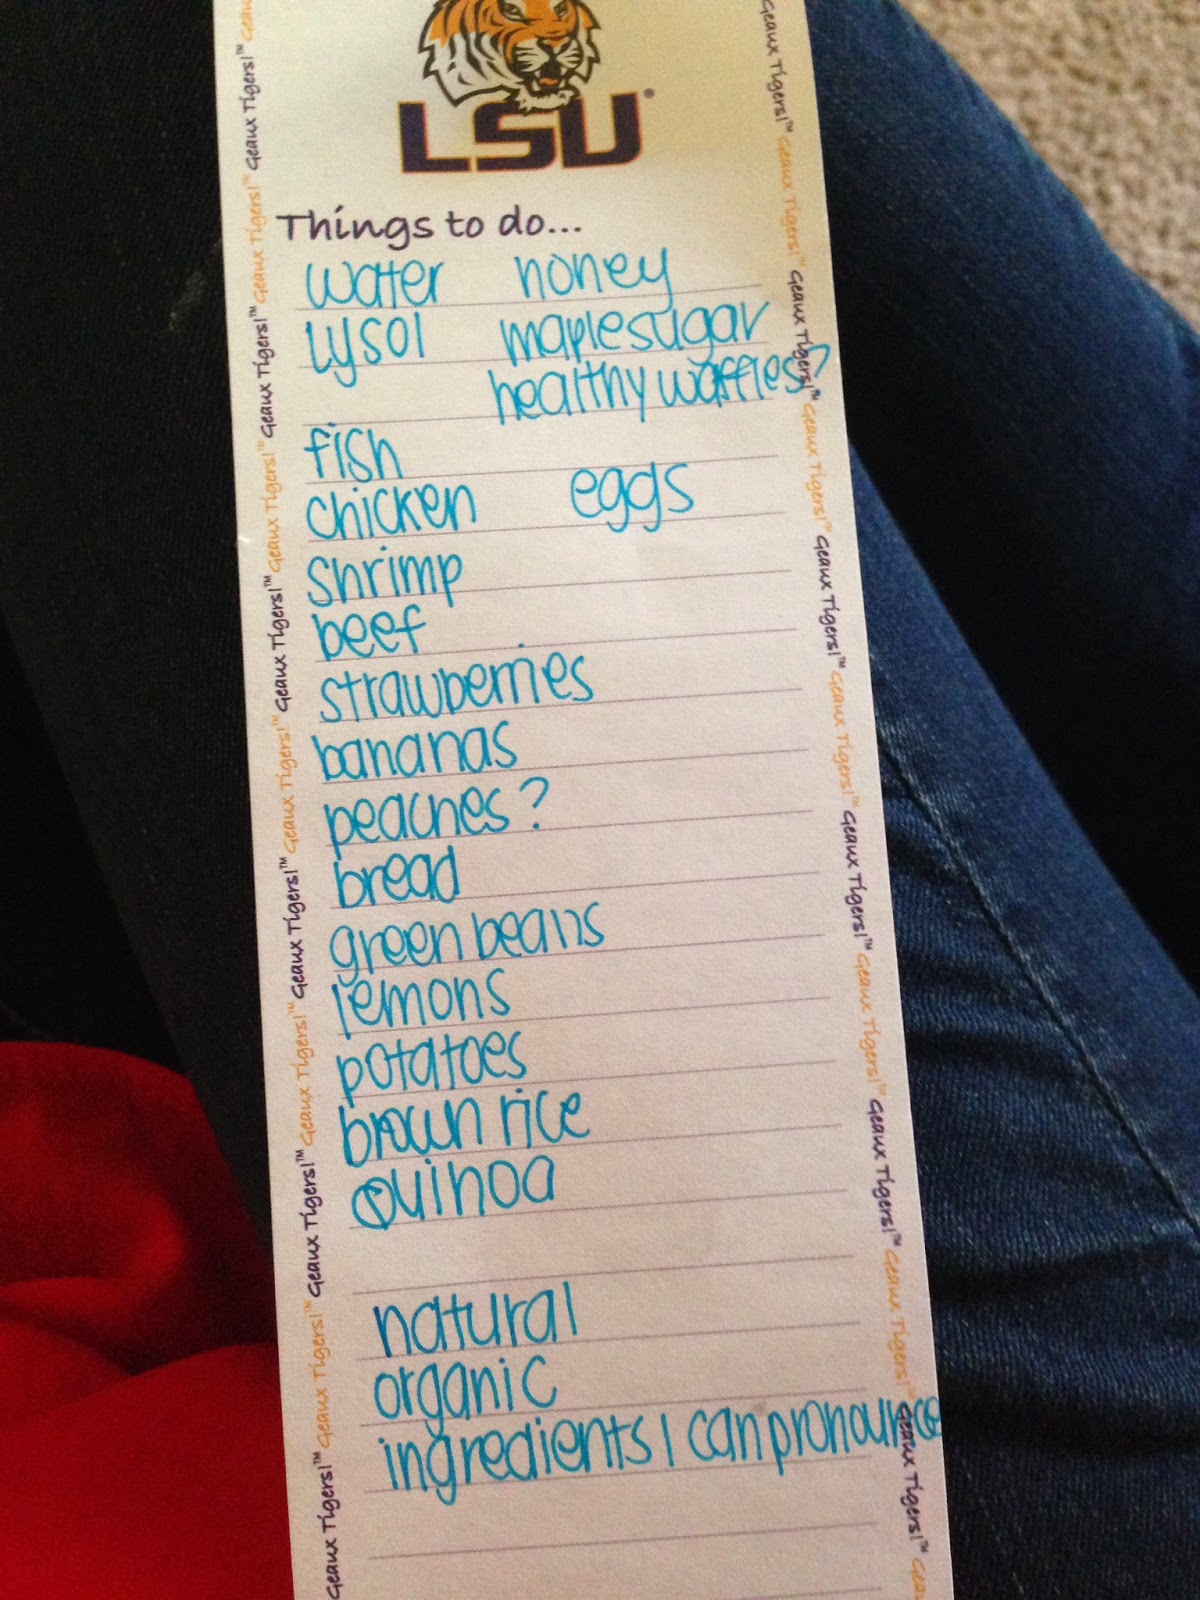 LSU®
Things to do...
water honey
lysol maple sugar
healthy waffles?
fish
chicken eggs
shrimp
beef
strawberries
bananas
peaches?
bread
green beans
lemons
potatoes
brown rice
quinoa
natural
organic
ingredients I can pronounce
Geaux Tigers!™ Geaux Tigers!™ Geaux Tigers!™ Geaux Tigers!™ Geaux Tigers!™ Geaux Tigers!™ Geaux Tigers!™ Geaux Tigers!™ Geaux Tigers!™ Geaux Tigers!™ Geaux Tigers!™ Geaux
Geaux Tigers!™ Geaux Tigers!™ Geaux Tigers!™ Geaux Tigers!™ Geaux Tigers!™ Geaux Tigers!™ Geaux Tigers!™ Geaux Tigers!™ Geaux Tigers!™ Geaux Tigers!™ Geaux Tigers!™ Geaux